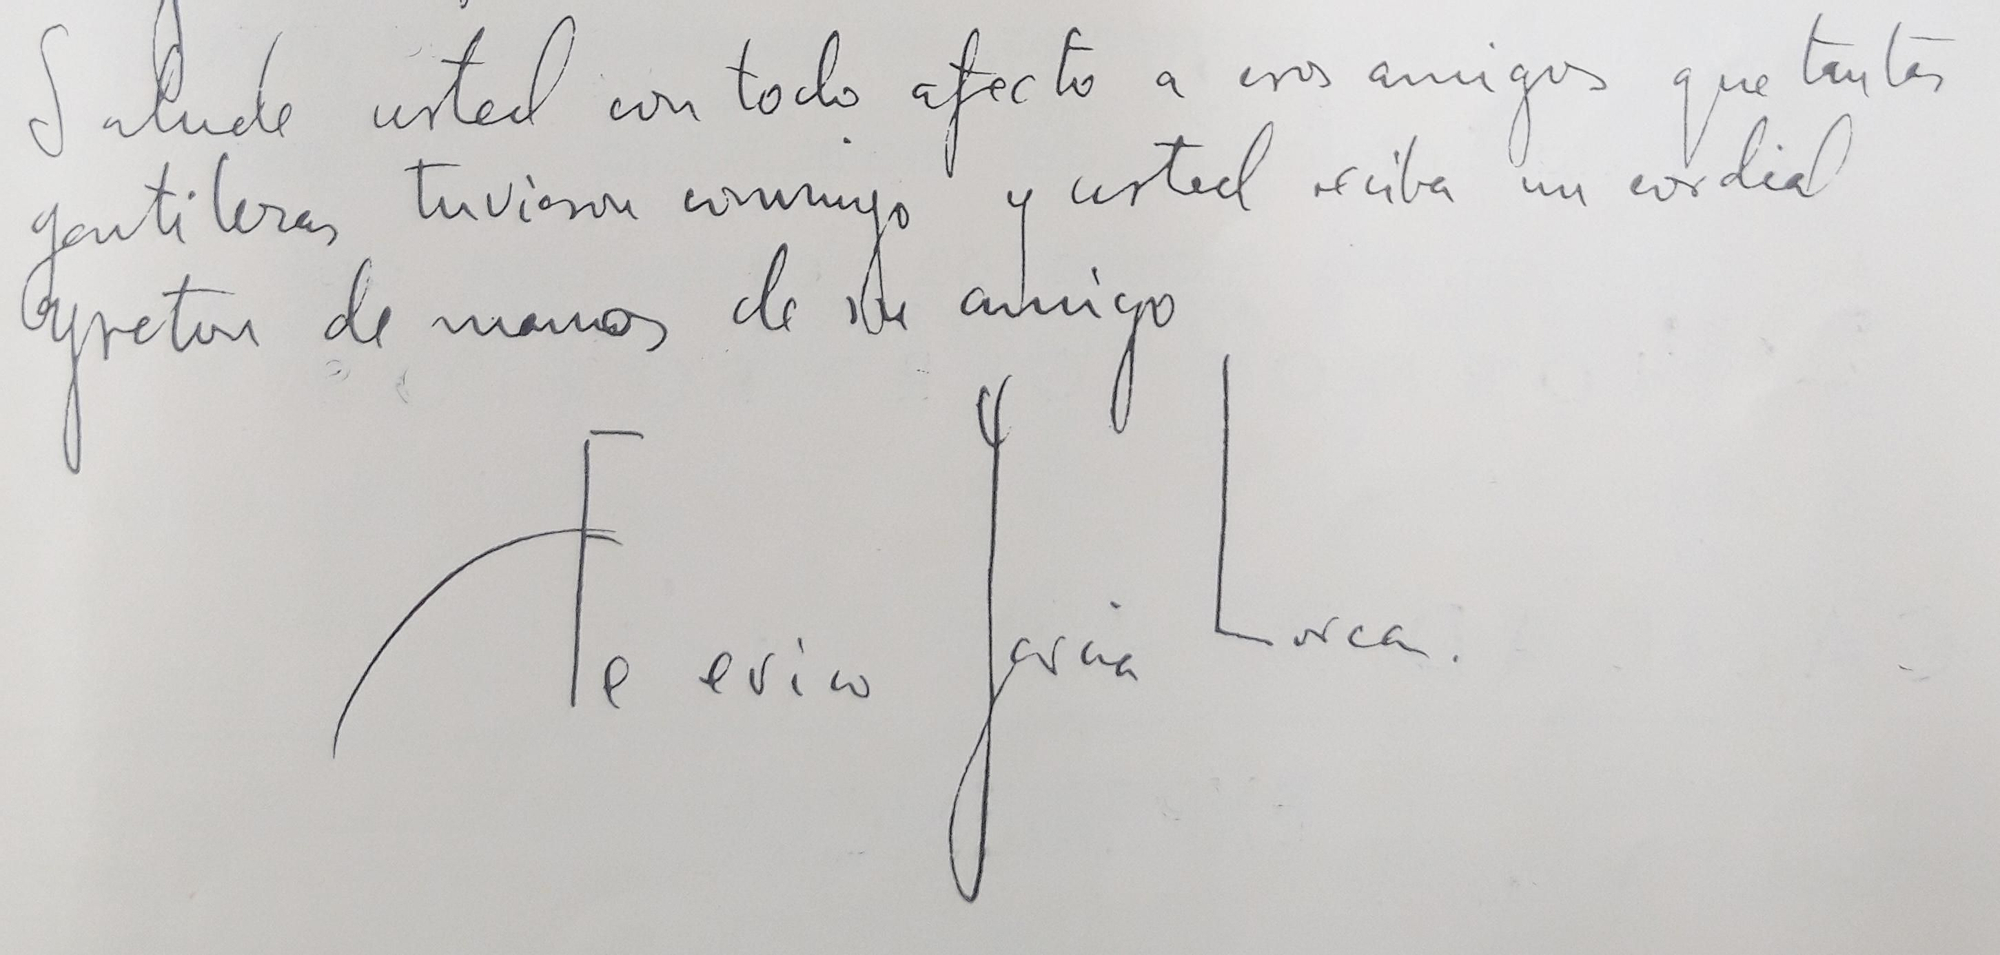 Salude usted con todo afecto a esos amigos que tantas
gentilezas tuvieron conmigo y usted reciba un cordial
apreton de manos de su amigo
Fe erico Garcia Lorca.